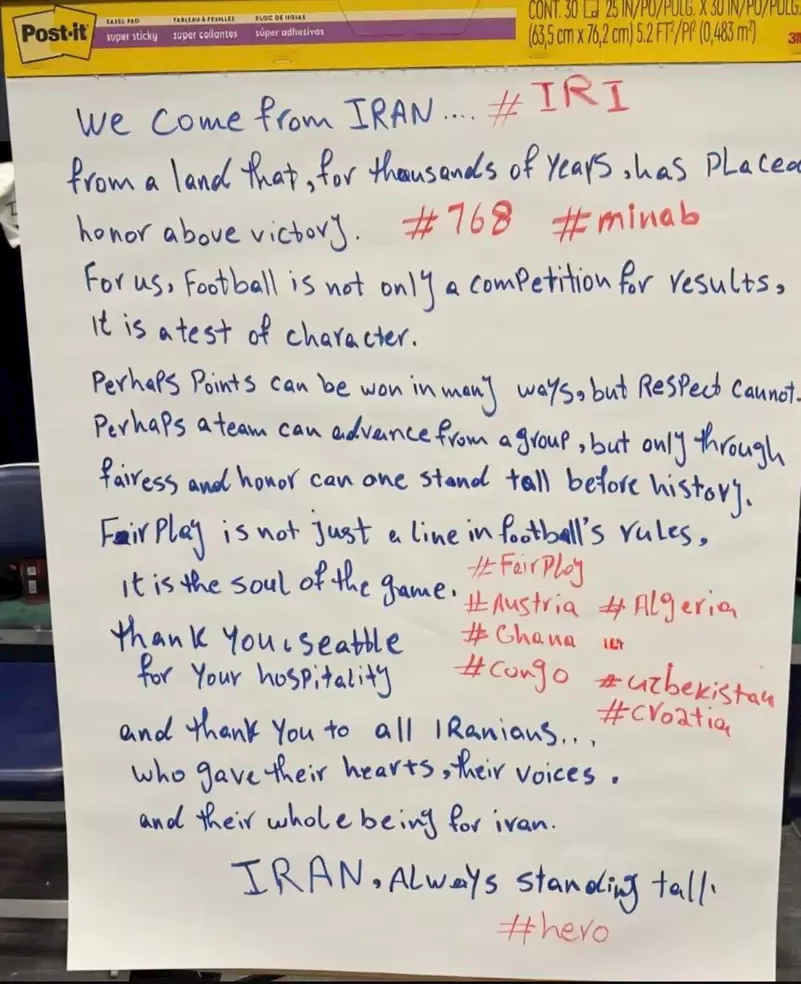 Post-it
EASEL PAD TABLEAU À FEUILLES BLOC DE HOJAS
super sticky super collantes súper adhesivas
CONT. 30 25 IN/PO/PULG. X 30 IN/PO/PULG.
(63,5 cm x 76,2 cm) 5.2 FT²/PI² (0,483 m²)
3M
We come from IRAN.... # IRI
from a land that, for thousands of years, has placed
honor above victory. #768 #minab
For us, Football is not only a competition for results,
it is a test of character.
Perhaps Points can be won in many ways, but Respect cannot.
Perhaps a team can advance from a group, but only through
fairess and honor can one stand tall before history.
Fair Play is not just a line in football's rules,
it is the soul of the game. #FairPlay
#Austria #Algeria
thank you, seattle #Ghana
for your hospitality #congo #uzbekistan
#croatia
and thank you to all IRanians...
who gave their hearts, their voices.
and their whole being for iran.
IRAN, Always standing tall.
#hero